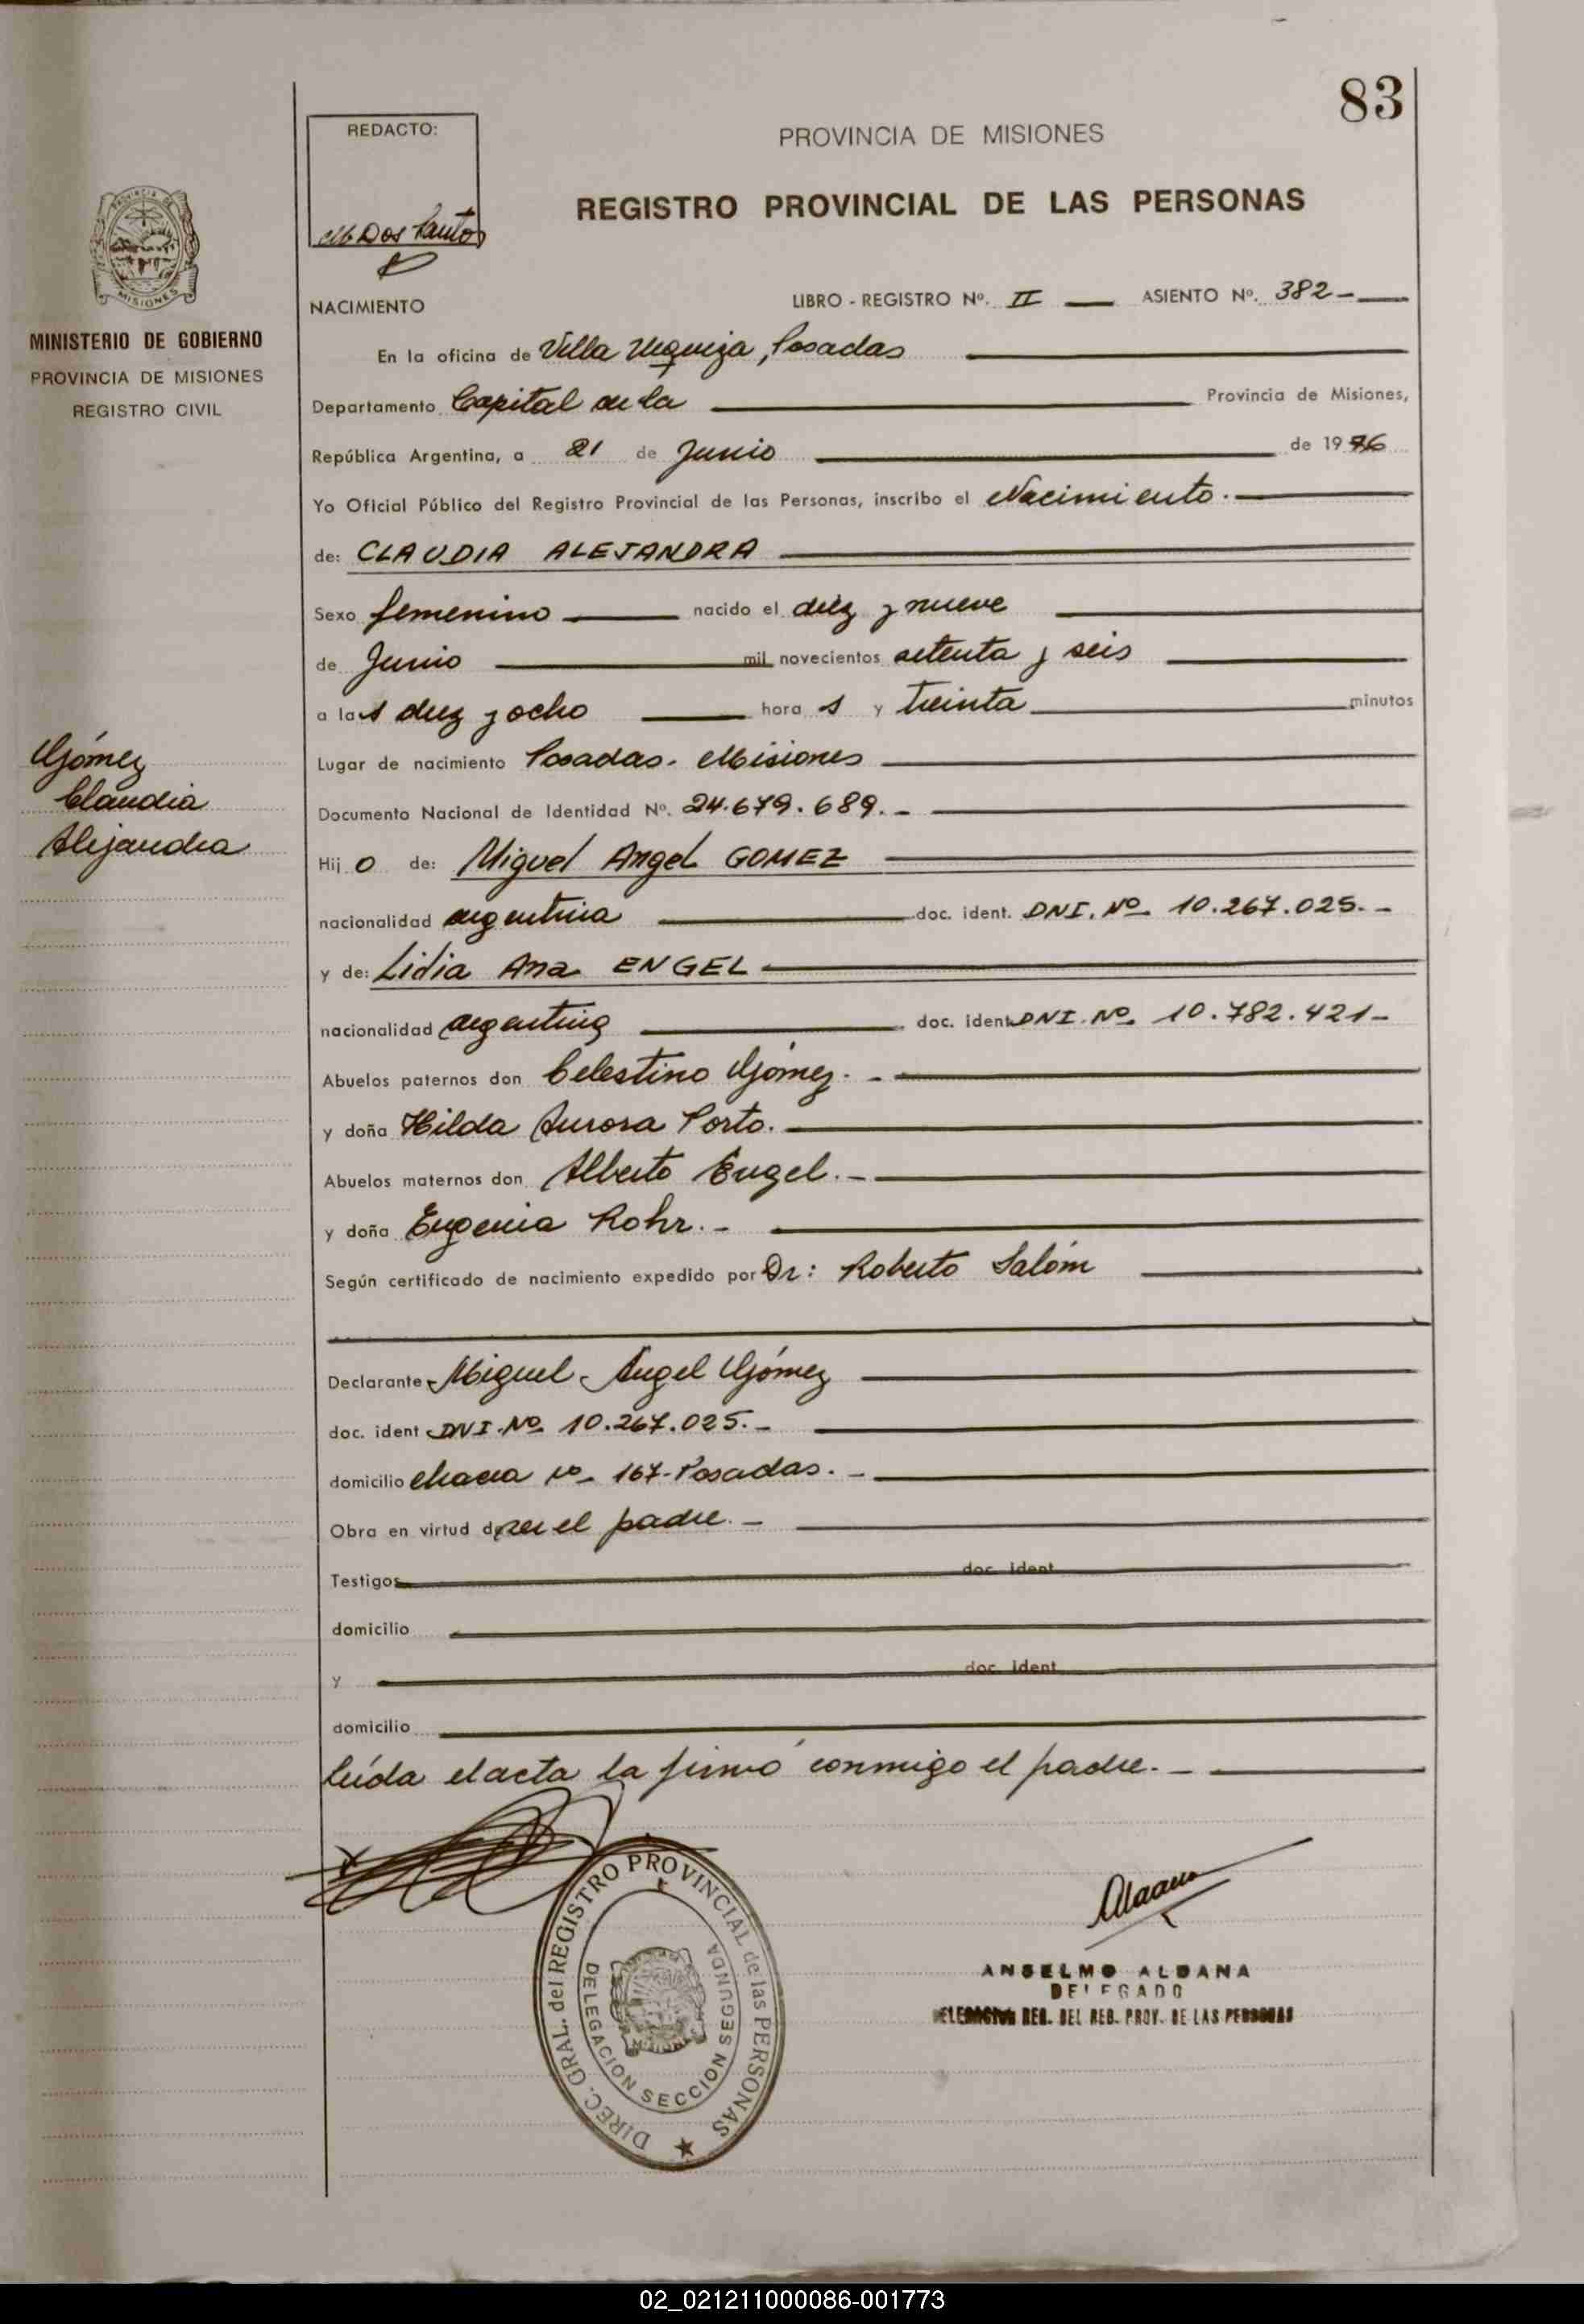 83
REDACTO:
PROVINCIA DE MISIONES
REGISTRO PROVINCIAL DE LAS PERSONAS
Dos Santos
NACIMIENTO
LIBRO - REGISTRO Nº. II ASIENTO Nº. 382 -
MISIONES
MINISTERIO DE GOBIERNO
PROVINCIA DE MISIONES
REGISTRO CIVIL
En la oficina de Villa Urquiza, Posadas
Departamento Capital de la Provincia de Misiones,
República Argentina, a 21 de Junio de 1976
Yo Oficial Público del Registro Provincial de las Personas, inscribo el Nacimiento. -
de: CLAUDIA ALEJANDRA
Sexo femenino nacido el diez y nueve
de Junio mil novecientos setenta y seis
a las diez y ocho hora s y treinta minutos
Gómez
Claudia
Alejandra
Lugar de nacimiento Posadas - Misiones
Documento Nacional de Identidad Nº. 24.679.689. -
Hij o de: Miguel Angel GOMEZ
nacionalidad argentina doc. ident. DNI. Nº 10.267.025. -
y de: Lidia Ana ENGEL
nacionalidad argentina doc. ident. DNI. Nº 10.782.421 -
Abuelos paternos don Celestino Gómez. -
y doña Hilda Aurora Porto.
Abuelos maternos don Alberto Engel. -
y doña Eugenia Rohr. -
Según certificado de nacimiento expedido por Dr: Roberto Salóm
Declarante Miguel Angel Gómez
doc. ident DNI. Nº 10.267.025. -
domicilio chacra Nº 167 - Posadas. -
Obra en virtud de ser el padre. -
Testigos doc. ident
domicilio
y doc. ident
domicilio
leída el acta la firmó conmigo el padre. -
DIREC. GRAL. del REGISTRO PROVINCIAL de las PERSONAS
DELEGACION SECCION SEGUNDA
ANSELMO ALDANA
DELEGADO
DELEGACION REG. DEL REG. PROV. DE LAS PERSONAS
02_021211000086-001773